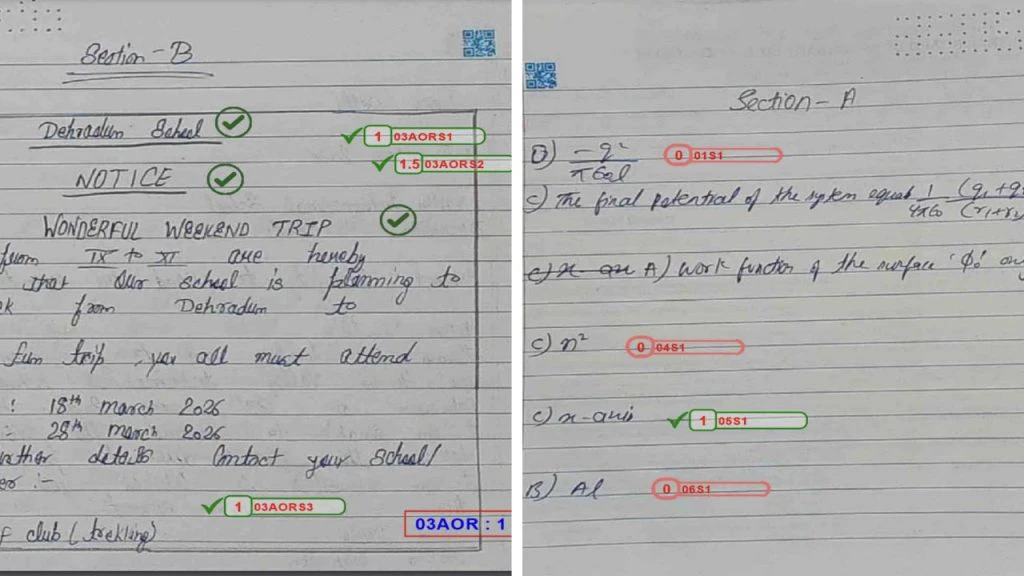 Section - B
Dehradun School
1 03AORS1
1.5 03AORS2
NOTICE
WONDERFUL WEEKEND TRIP
from IX to XI are hereby
that Our school is planning to
from Dehradun to
fun trip you all must attend
: 18th march 2026
:- 28th march 2026
details .. Contact your School/
:-
1 03AORS3
03AOR : 1
club (trekking)
Section - A
D) -q²/πε₀l
0 01S1
C) The final potential of the system equal 1/4πε₀ (q₁+q₂ (r₁+r₂
A) Work function of the surface 'ϕ₀'
C) n²
0 04S1
C) x-axis
1 05S1
B) Al
0 06S1